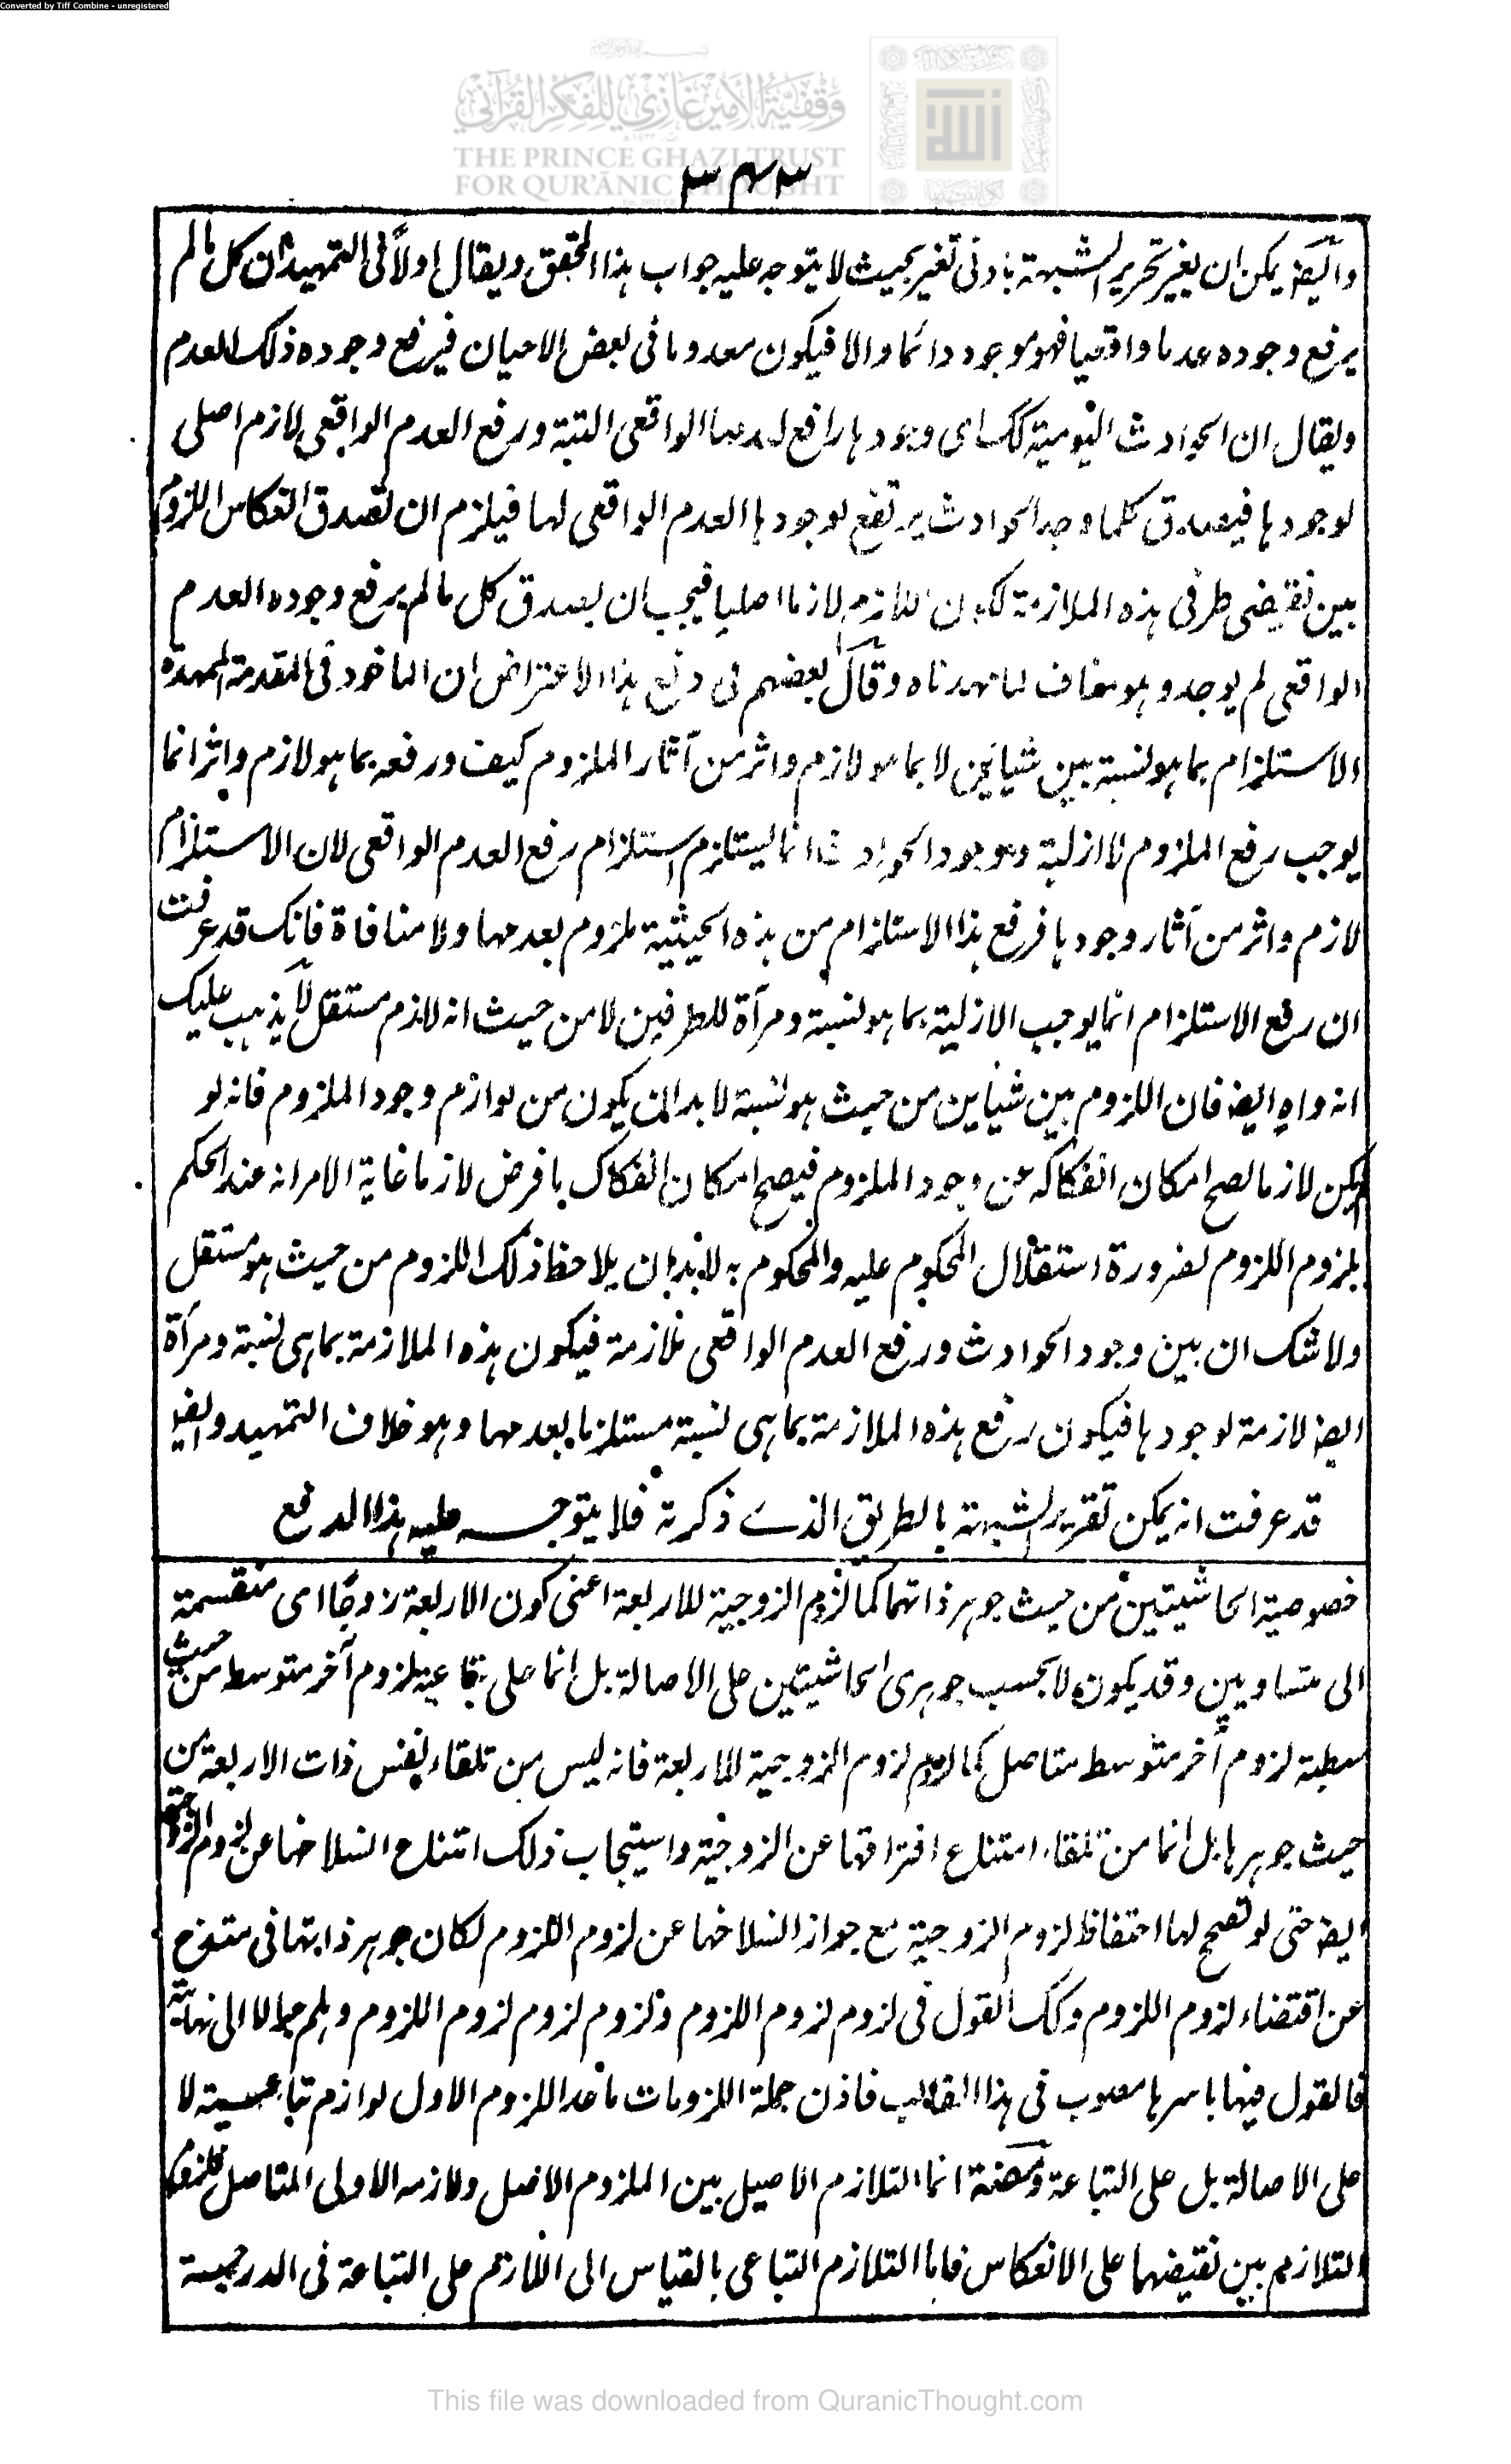 Converted by Tiff Combine - unregistered
وقفية الأمير غازي للفكر القرآني
THE PRINCE GHAZI TRUST
FOR QUR'ĀNIC THOUGHT
٣٤٣
وايضا يمكن ان يغير تحرير الشبهة بادنى تغير بحيث لا يتوجه عليه جواب هذا المحقق ويقال اولاً فى التمهيد ان كل ما لم
يرفع وجوده عدما واقعيا فهو موجود دائما والا فيكون معدوما فى بعض الاحيان فيرفع وجوده ذلك العدم
ويقال ان الحوادث اليومية كك اى وجودها رافع لعدمها الواقعى البتة ورفع العدم الواقعى لازم اصلى
لوجودها فيصدق كلما وجد الحوادث يرتفع لوجودها العدم الواقعى لها فيلزم ان تصدق انعكاس اللزوم
بين نقيضى طرفى هذه الملازمة لكون اللازم لازما اصليا فيجب ان يصدق كل ما لم يرفع وجوده العدم
الواقعى لم يوجد وهو مناف لما مهدناه وقال بعضهم فى دفع هذا الاعتراض ان الماخوذ فى المقدمة الممهدة
الاستلزام بما هو نسبة بين شيائين لا بما هو لازم واثر من آثار الملزوم كيف ورفعه بما هو لازم واثر انما
يوجب رفع الملزوم لا ازلية وجود الحوادث انما يستلزم استلزام رفع العدم الواقعى لان الاستلزام
لازم واثر من آثار وجودها فرفع هذا الاستلزام من هذه الحيثية ملزوم بعدمها ولا منافاة فانك قد عرفت
ان رفع الاستلزام انما يوجب الازلية بما هو نسبة ومرآة للطرفين لا من حيث انه لازم مستقل لا يذهب عليك
انه واهٍ ايضا فان اللزوم بين شيأين من حيث هو نسبة لا بد ان يكون من لوازم وجود الملزوم فانه لو
لم يكن لازما لصح امكان انفكاكه عن وجود الملزوم فيصح امكان انفكاك ما فرض لازما غاية الامر انه عند الحكم
بلزوم اللزوم لضرورة استقلال المحكوم عليه والمحكوم به لا بد ان يلاحظ ذلك اللزوم من حيث هو مستقل
ولا شك ان بين وجود الحوادث ورفع العدم الواقعى ملازمة فيكون هذه الملازمة بما هى نسبة ومرآة
ايضا لازمة لوجودها فيكون رفع هذه الملازمة بما هى نسبة مستلزما بعدمها وهو خلاف التمهيد وايضا
قد عرفت انه يمكن تقرير الشبهة بالطريق الذے ذكرته فلا يتوجه عليه هذا الدفع
خصوصية الحاشيتين من حيث جوهر ذاتهما كما لزوم الزوجية للاربعة اعنى كون الاربعة زوجًا اى منقسمة
الى متساويين وقد يكون لا بحسب جوهرى الحاشيتين على الاصالة بل انما على تباعية لزوم آخر متوسط من حيث
لزوم آخر متوسط متاصل كما لزوم لزوم الزوجية للاربعة فانه ليس من تلقاء نفس ذات الاربعة من
حيث جوهرها بل انما من تلقاء امتناع افتراقها عن الزوجية واستيجاب ذلك امتناع انسلاخها عن لزوم الزوجية
ايضا حتى لو تصحح لها احتفاظ لزوم الزوجية مع جواز انسلاخها عن لزوم اللزوم لكان جوهر ذاتها فى متفرخ
عن اقتضاء لزوم اللزوم وكك القول فى لزوم لزوم اللزوم ولزوم لزوم لزوم اللزوم وهلم جرا لا الى نهاية
فالقول فيها باسرها مصبوب فى هذا القالب فاذن جملة اللزومات ما عدا اللزوم الاول لوازم تباعية لا
على الاصالة بل على التباعة انما التلازم الاصيل بين الملزوم الاصل ولازمه الاولى المتاصل
التلازم بين نقيضهما على الانعكاس فاما التلازم التباعى بالقياس الى اللازم على التباعة فى الدرجة
This file was downloaded from QuranicThought.com